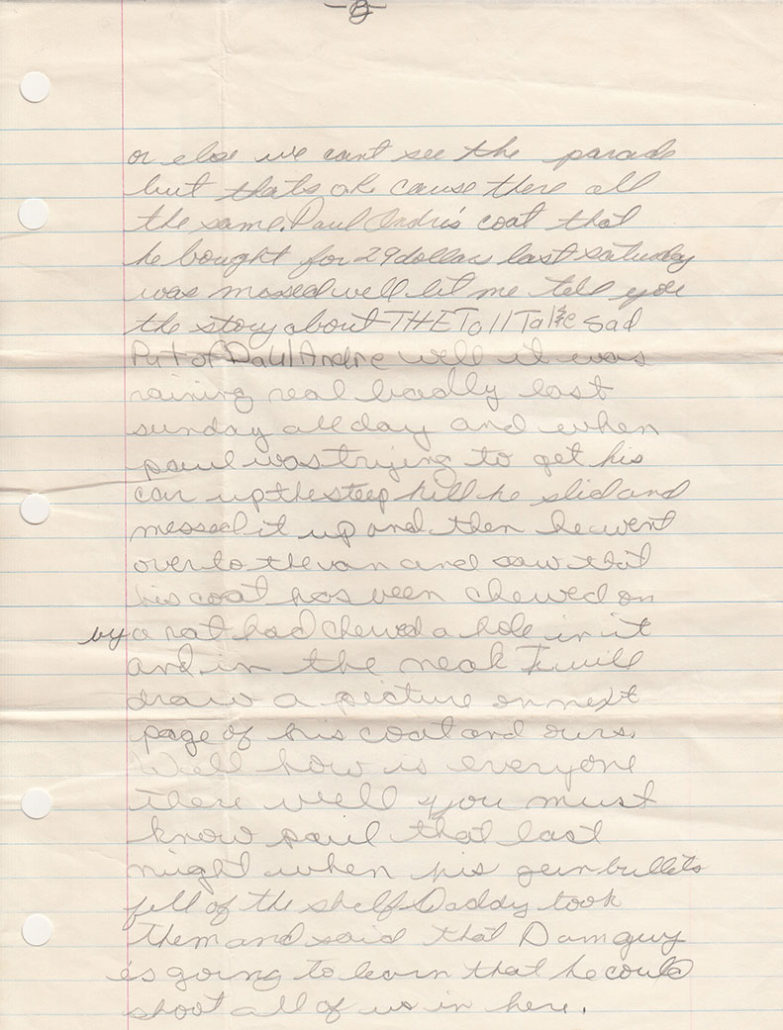 -8-
or else we cant see the parade
but thats ok cause there all
the same. Paul Andre's coat that
he bought for 29 dollars last saturday
was messed well let me tell you
the story about THE Tall Tale sad
Part of Paul Andre well it was
raining real badly last
sunday all day and when
paul was trying to get his
car up the steep hill he slid and
messed it up and then he went
over to the van and saw that
his coat has been chewed on
by a rat had chewed a hole in it
and in the neck I will
draw a picture on next
page of his coat and ours.
Well how is everyone
there well you must
know paul that last
night when his gun bullets
fell of the shelf Daddy took
them and said that Dam guy
is going to learn that he could
shoot all of us in here.